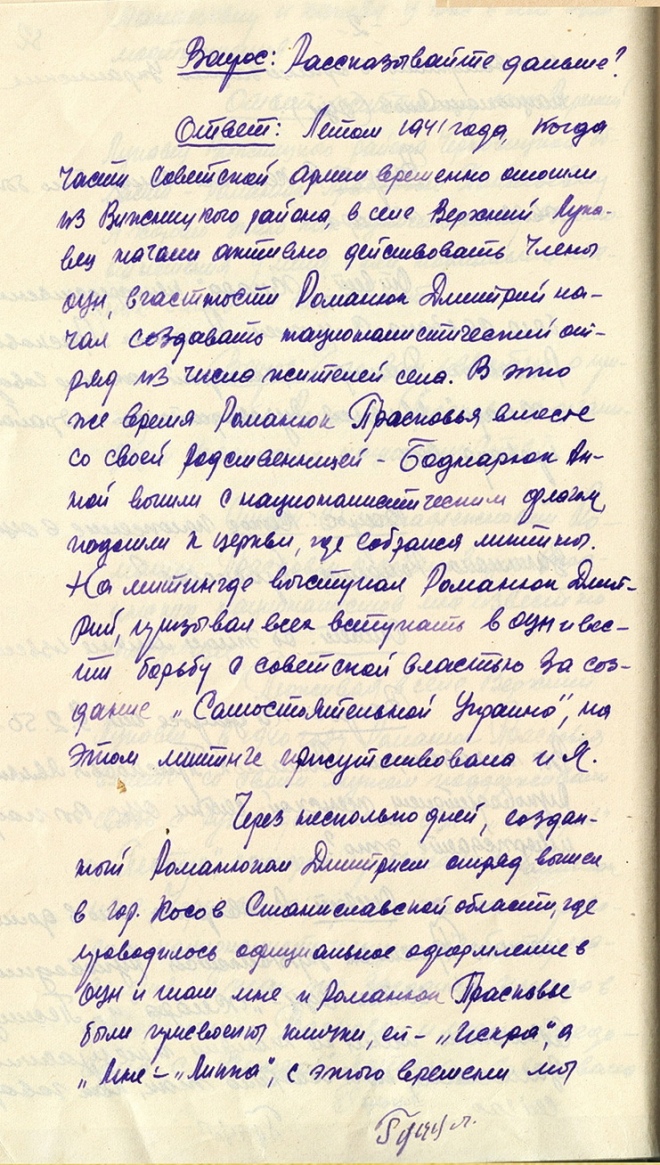 Вопрос: Рассказывайте дальше?
Ответ: Летом 1941 года когда
части советской армии временно отошли
из Вижницкого района, в селе Верхний Лука-
вец начали активно действовать члены
оун, в частности Романюк Дмитрий на-
чал создавать националистический от-
ряд из числа жителей села. В это
же время Романюк Прасковья вместе
со своей родственницей - Боднарюк Ан-
ной вышли с националистическим флагом,
подошли к церкви, где собрался митинг.
На митинге выступал Романюк Дмит-
рий, призывал всех вступать в оун и вес-
ти борьбу с советской властью за соз-
дание „Самостоятельной Украины", на
этом митинге присутствовала и я.
Через несколько дней, создан-
ный Романюком Дмитрием отряд вышел
в гор. Косов Станиславской области, где
проводилось официальное оформление в
оун и там мне и Романюк Прасковье
были присвоены клички, ей - „Искра", а
„Мне - „Липка", с этого времени мы